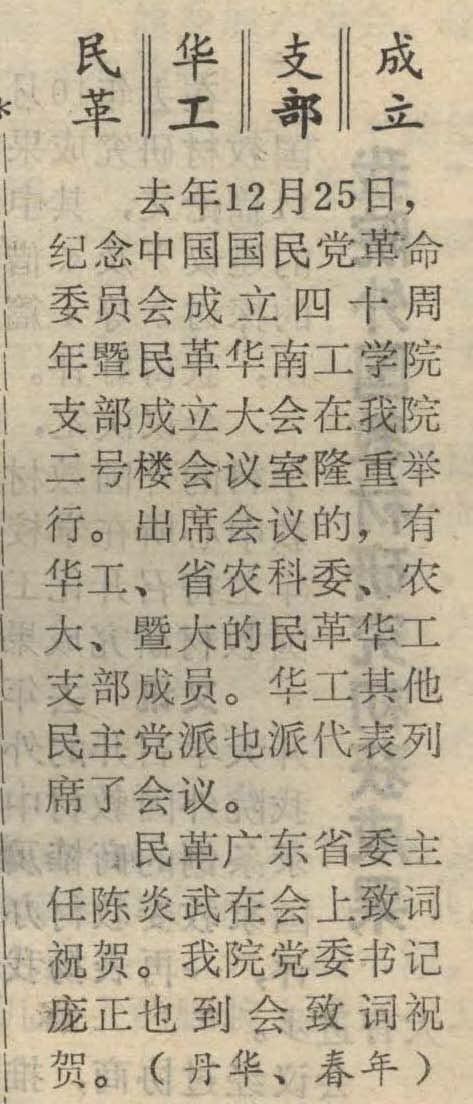 民革 华工 支部 成立
去年12月25日，
纪念中国国民党革命
委员会成立四十周
年暨民革华南工学院
支部成立大会在我院
二号楼会议室隆重举
行。出席会议的，有
华工、省农科委、农
大、暨大的民革华工
支部成员。华工其他
民主党派也派代表列
席了会议。
民革广东省委主
任陈炎武在会上致词
祝贺。我院党委书记
庞正也到会致词祝
贺。（丹华、春年）